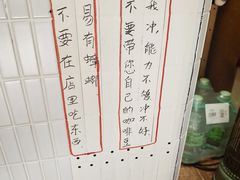 我冲,能力不够冲不好
不要带您自己的咖啡豆
易有蟑螂
不要在店里吃东西